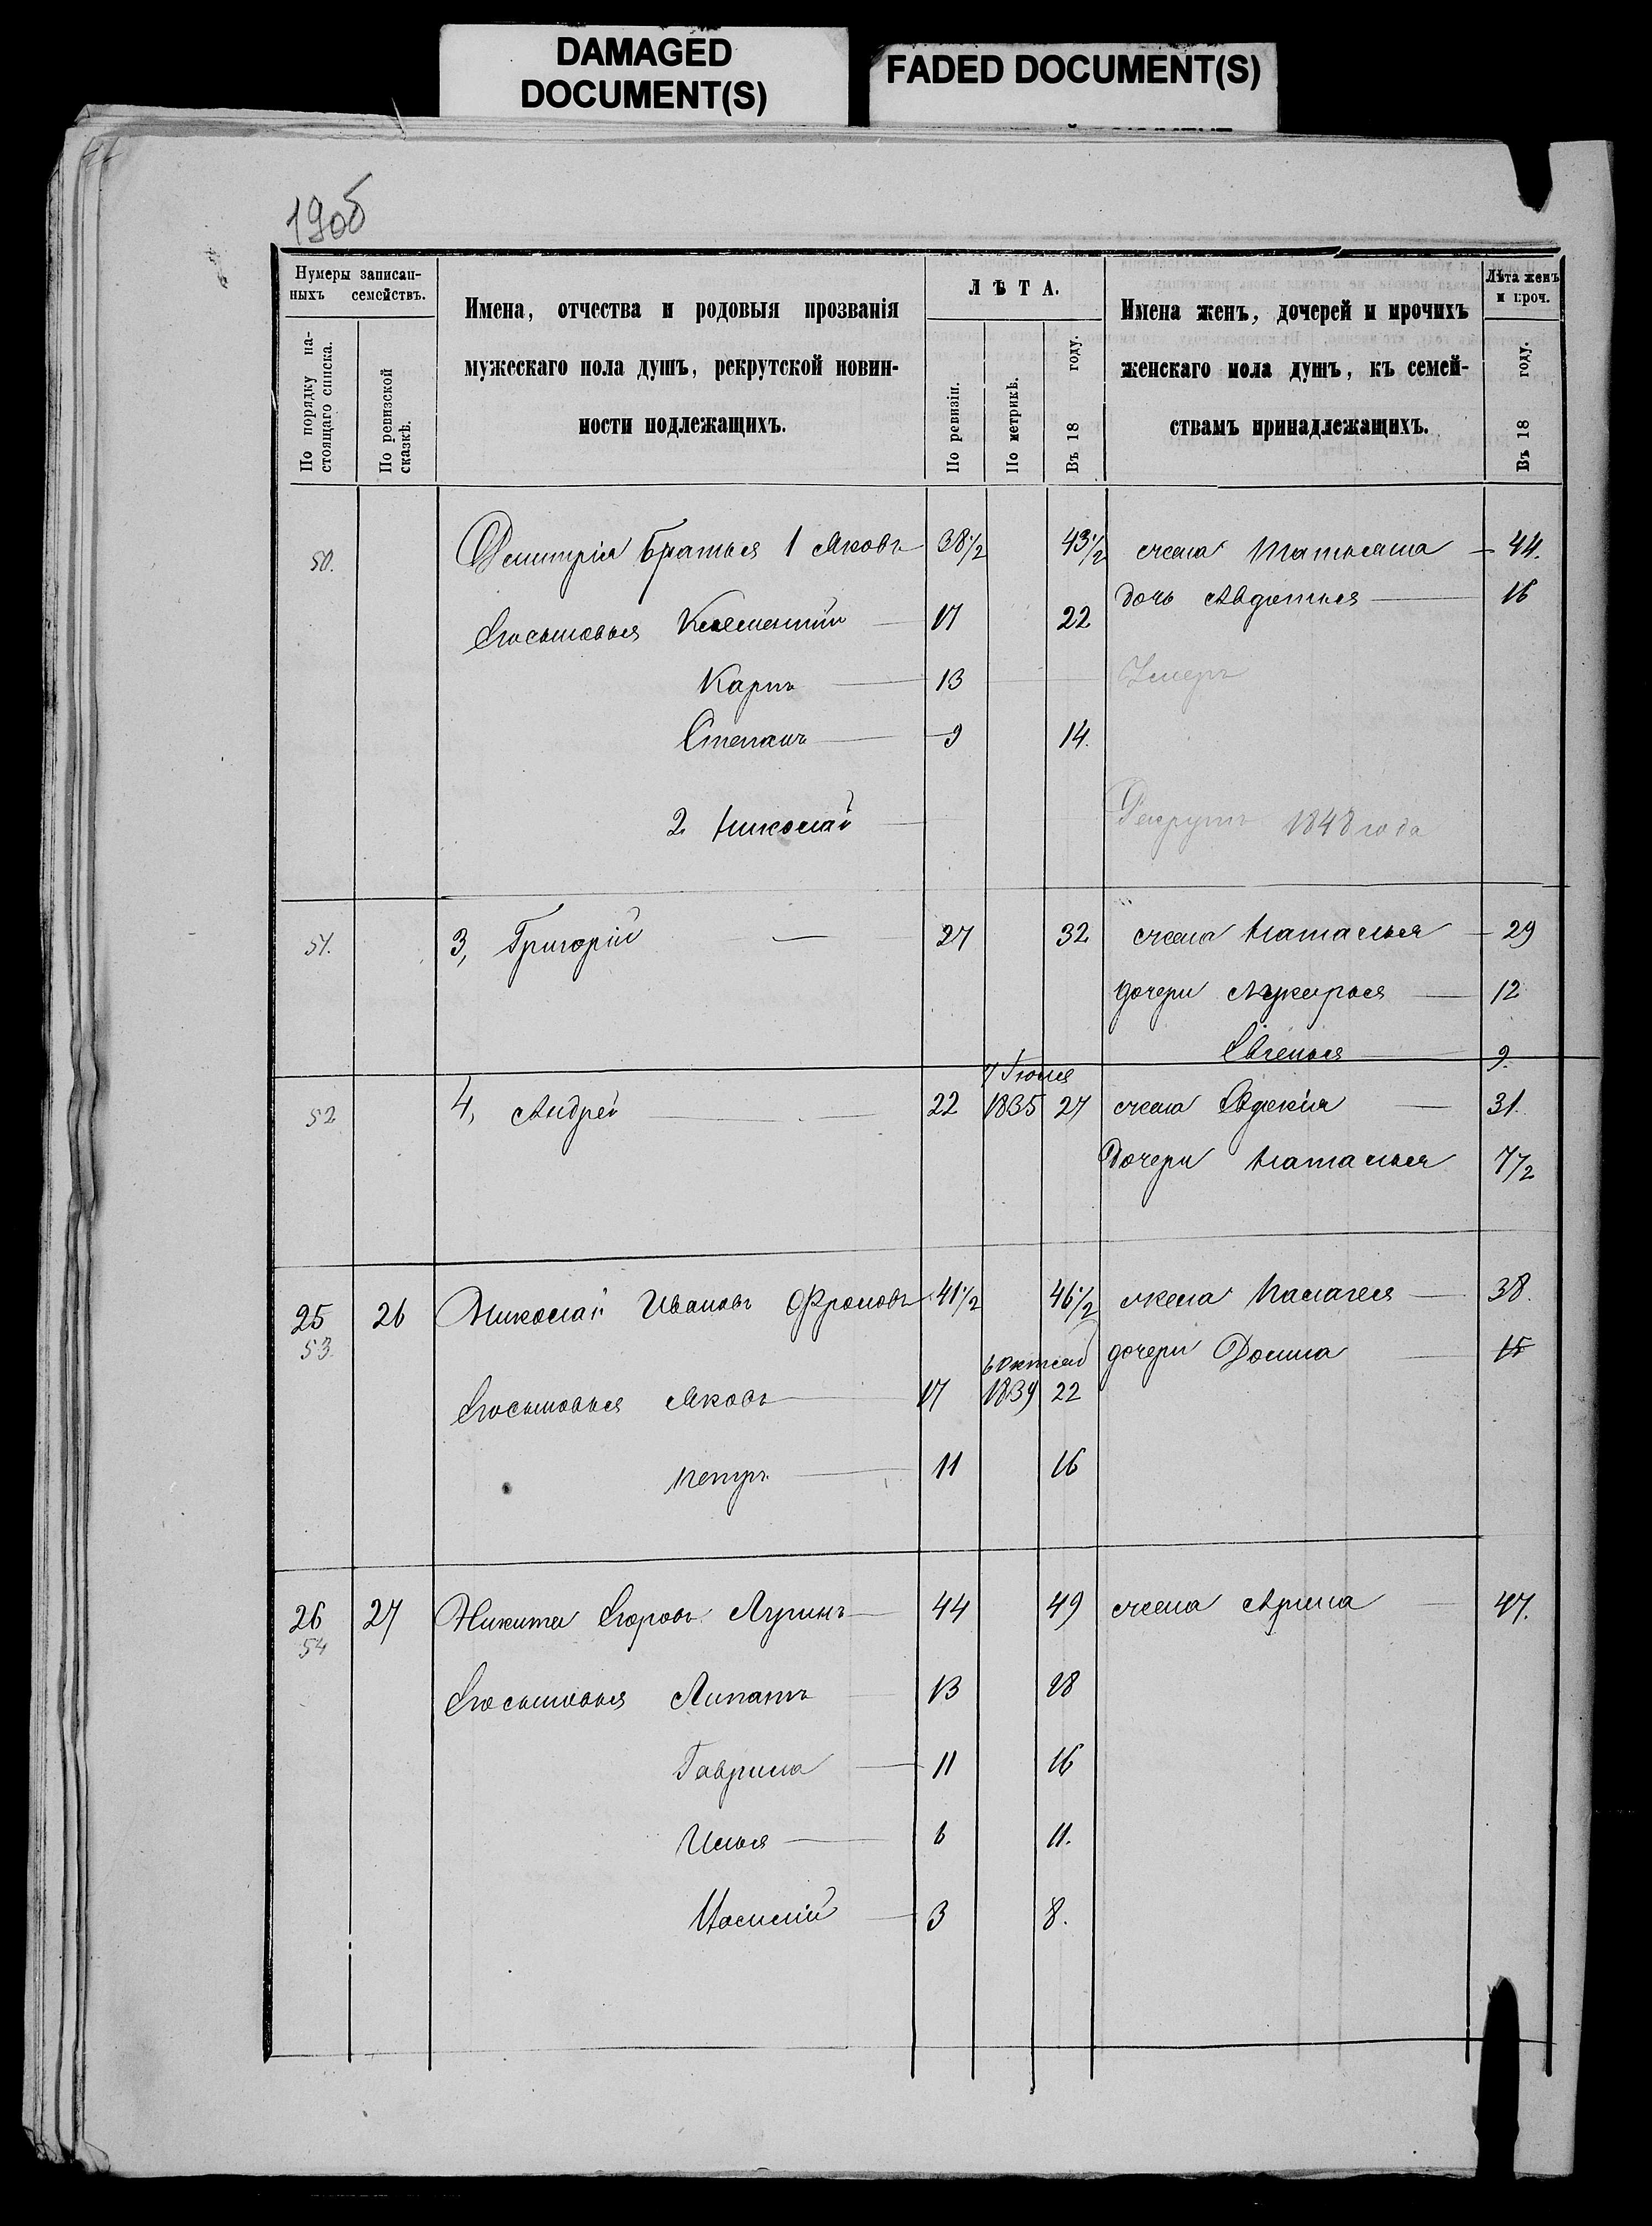 DAMAGED
DOCUMENT(S)
FADED DOCUMENT(S)
190б
Нумеры записан-
ныхъ семействъ.
По порядку на-
стоящаго списка.
По ревизской
сказкѣ.
Имена, отчества и родовыя прозванія
мужескаго пола душъ, рекрутской повин-
ности подлежащихъ.
ЛѢТА.
По ревизіи.
По метрикѣ.
Въ 18 году.
Имена женъ, дочерей и прочихъ
женскаго пола душъ, къ семей-
ствамъ принадлежащихъ.
Лѣта женъ
и проч.
Въ 18 году.
50. Дмитрія братья 1 Яковъ 38½ 43½ жена Татьяна 44.
дочь Авдотья 16
Егосыновья Клементий 17 22
Карпъ 13 Умеръ
Степанъ 9 14.
2 Николай Рекрутъ 1848 года
51. 3, Григорій 27 32 жена Наталья 29
дочери Лукерья 12
Евгенья 9.
7 Июля
52 4, Андрей 22 1835 27 жена Евдокія 31.
Дочери Наталья 7½
25 26 Николай Ивановъ Фроловъ 41½ 46½ жена Палагея 38.
53. дочери Домна 15
6 Октяб
Егосыновья Яковъ 17 1839 22
Петръ 11 16
26 27 Никита Егоровъ 44 49 жена Арина 47.
54
Егосыновья Липатъ 13 18
Гаврила 11 16
Илья 6 11.
Василій 3 8.